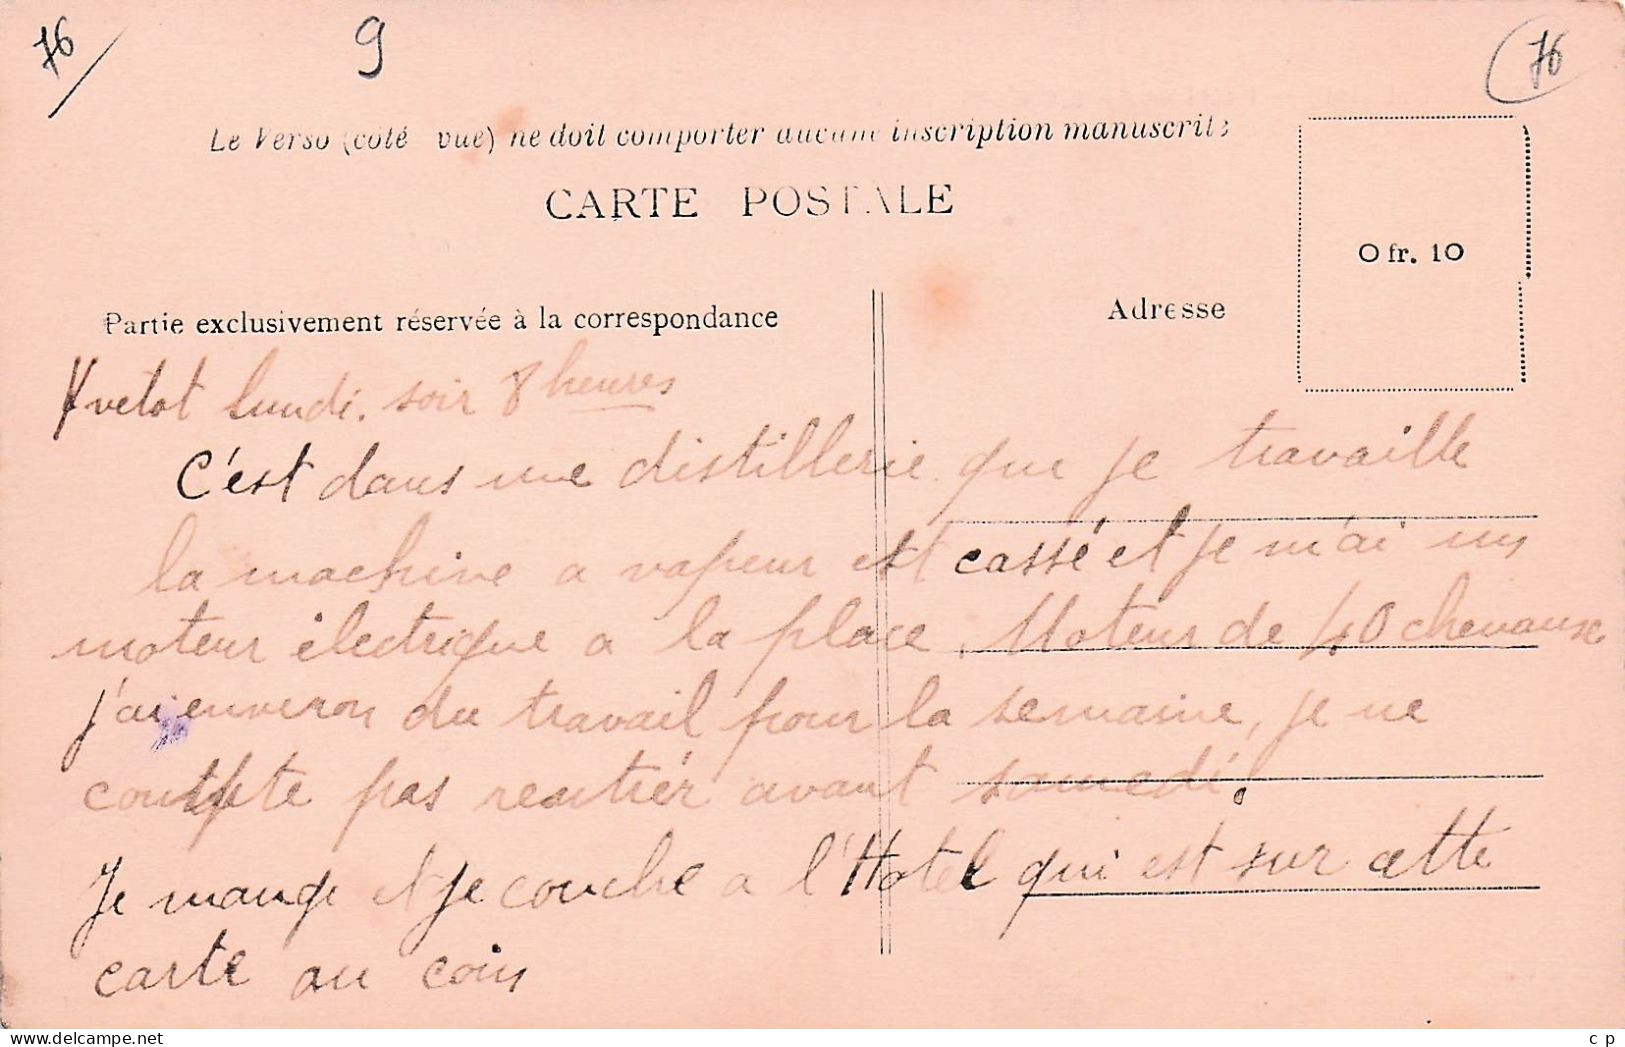 76
9
76
Le Verso (côté vue) ne doit comporter aucune inscription manuscrite
CARTE POSTALE
0 fr. 10
Partie exclusivement réservée à la correspondance
Adresse
Yvetot lundi. soir 8 heures
C'est dans une distillerie que je travaille
la machine a vapeur est cassé et je m'ai un
moteur électrique a la place. Moteur de 40 chevaux
j'ai environ du travail pour la semaine, je ne
compte pas rentrér avant samedi.
Je mange et je couche a l'Hotel qui est sur cette
carte au coin
www.delcampe.net
c p